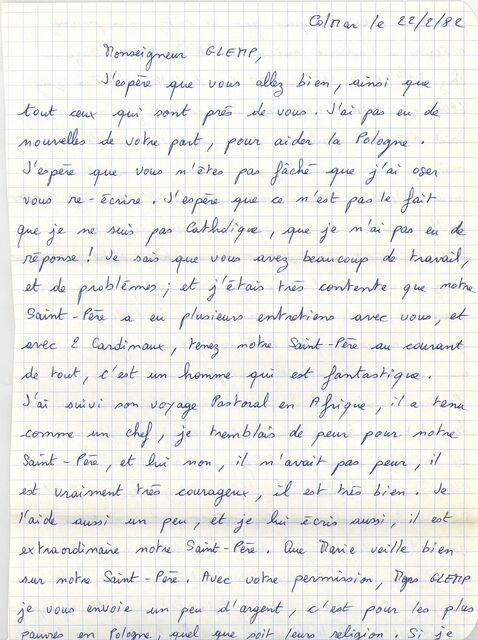 Colmar le 22/2/82
Monseigneur GLEMP,
J'espère que vous allez bien, ainsi que
tout ceux qui sont près de vous. J'ai pas eu de
nouvelles de votre part, pour aider la Pologne.
J'espère que vous n'êtes pas fâché que j'ai oser
vous re-écrire. J'espère que ce n'est pas le fait
que je ne suis pas Catholique, que je n'ai pas eu de
réponse! Je sais que vous avez beaucoup de travail,
et de problèmes; et j'étais très contente que notre
Saint-Père a eu plusieurs entretiens avec vous, et
avec 2 Cardinaux, tenez notre Saint-Père au courant
de tout, c'est un homme qui est fantastique.
J'ai suivi son voyage Pastoral en Afrique, il a tenu
comme un chef, je tremblais de peur pour notre
Saint-Père, et lui non, il n'avait pas peur, il
est vraiment très courageux, il est très bien. Je
l'aide aussi un peu, et je lui écris aussi, il est
extraordinaire notre Saint-Père. Que Marie veille bien
sur notre Saint-Père. Avec votre permission, Mgrs GLEMP
je vous envoie un peu d'argent, c'est pour les plus
pauvres en Pologne, quel que soit leur religion. Si je